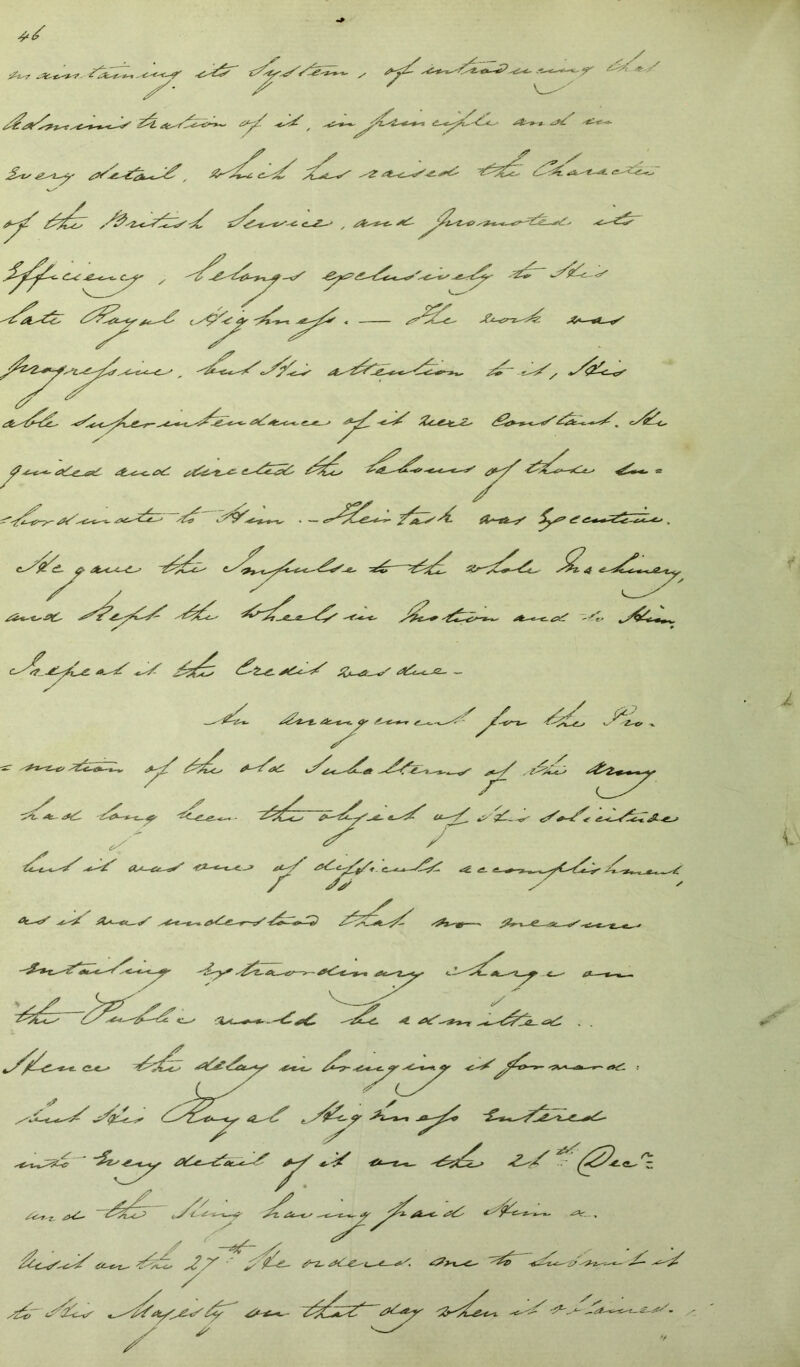 46
maintaining its System, of introducing that
Administration of it, in principle and in
Every detail, which has raised the Character
of the British Service, and promoted its
Efficiency, belongs exclusively to His
late Royal Highness. — The work was
progressive, but His attention to it, His
able Superintendance of it were Constant. He
guided and directed the labours of those Su=
=bordinate to Him. — Their task was Executive.
He gave the Impulse to the whole Machinery,
and kept the Wheels in Motion and to Him,
I repeat it the Credit was due —
An Arrangement for the Pro-
=motion of the old Subalterns of the Army
had long been the object of His Solicitude
but it was one of difficult accomplishment
as it was understood that no measure
Entailing Extraordinary charge on
the Public would be admitted . .
Hence the delay in bringing it forward :
but His Royal Highness Entered
into Every detail of it on the 26th Decr.
and the King having paid Him a
Visit on the 27th He ordered me to submit it
to His Majesty on that day when it obtained